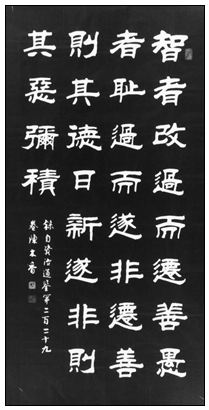 智者改過而遷善愚
者耻過而遂非遷善
則其德日新遂非則
其惡彌積
錄自資治通鑒第二百二十九
卷陳